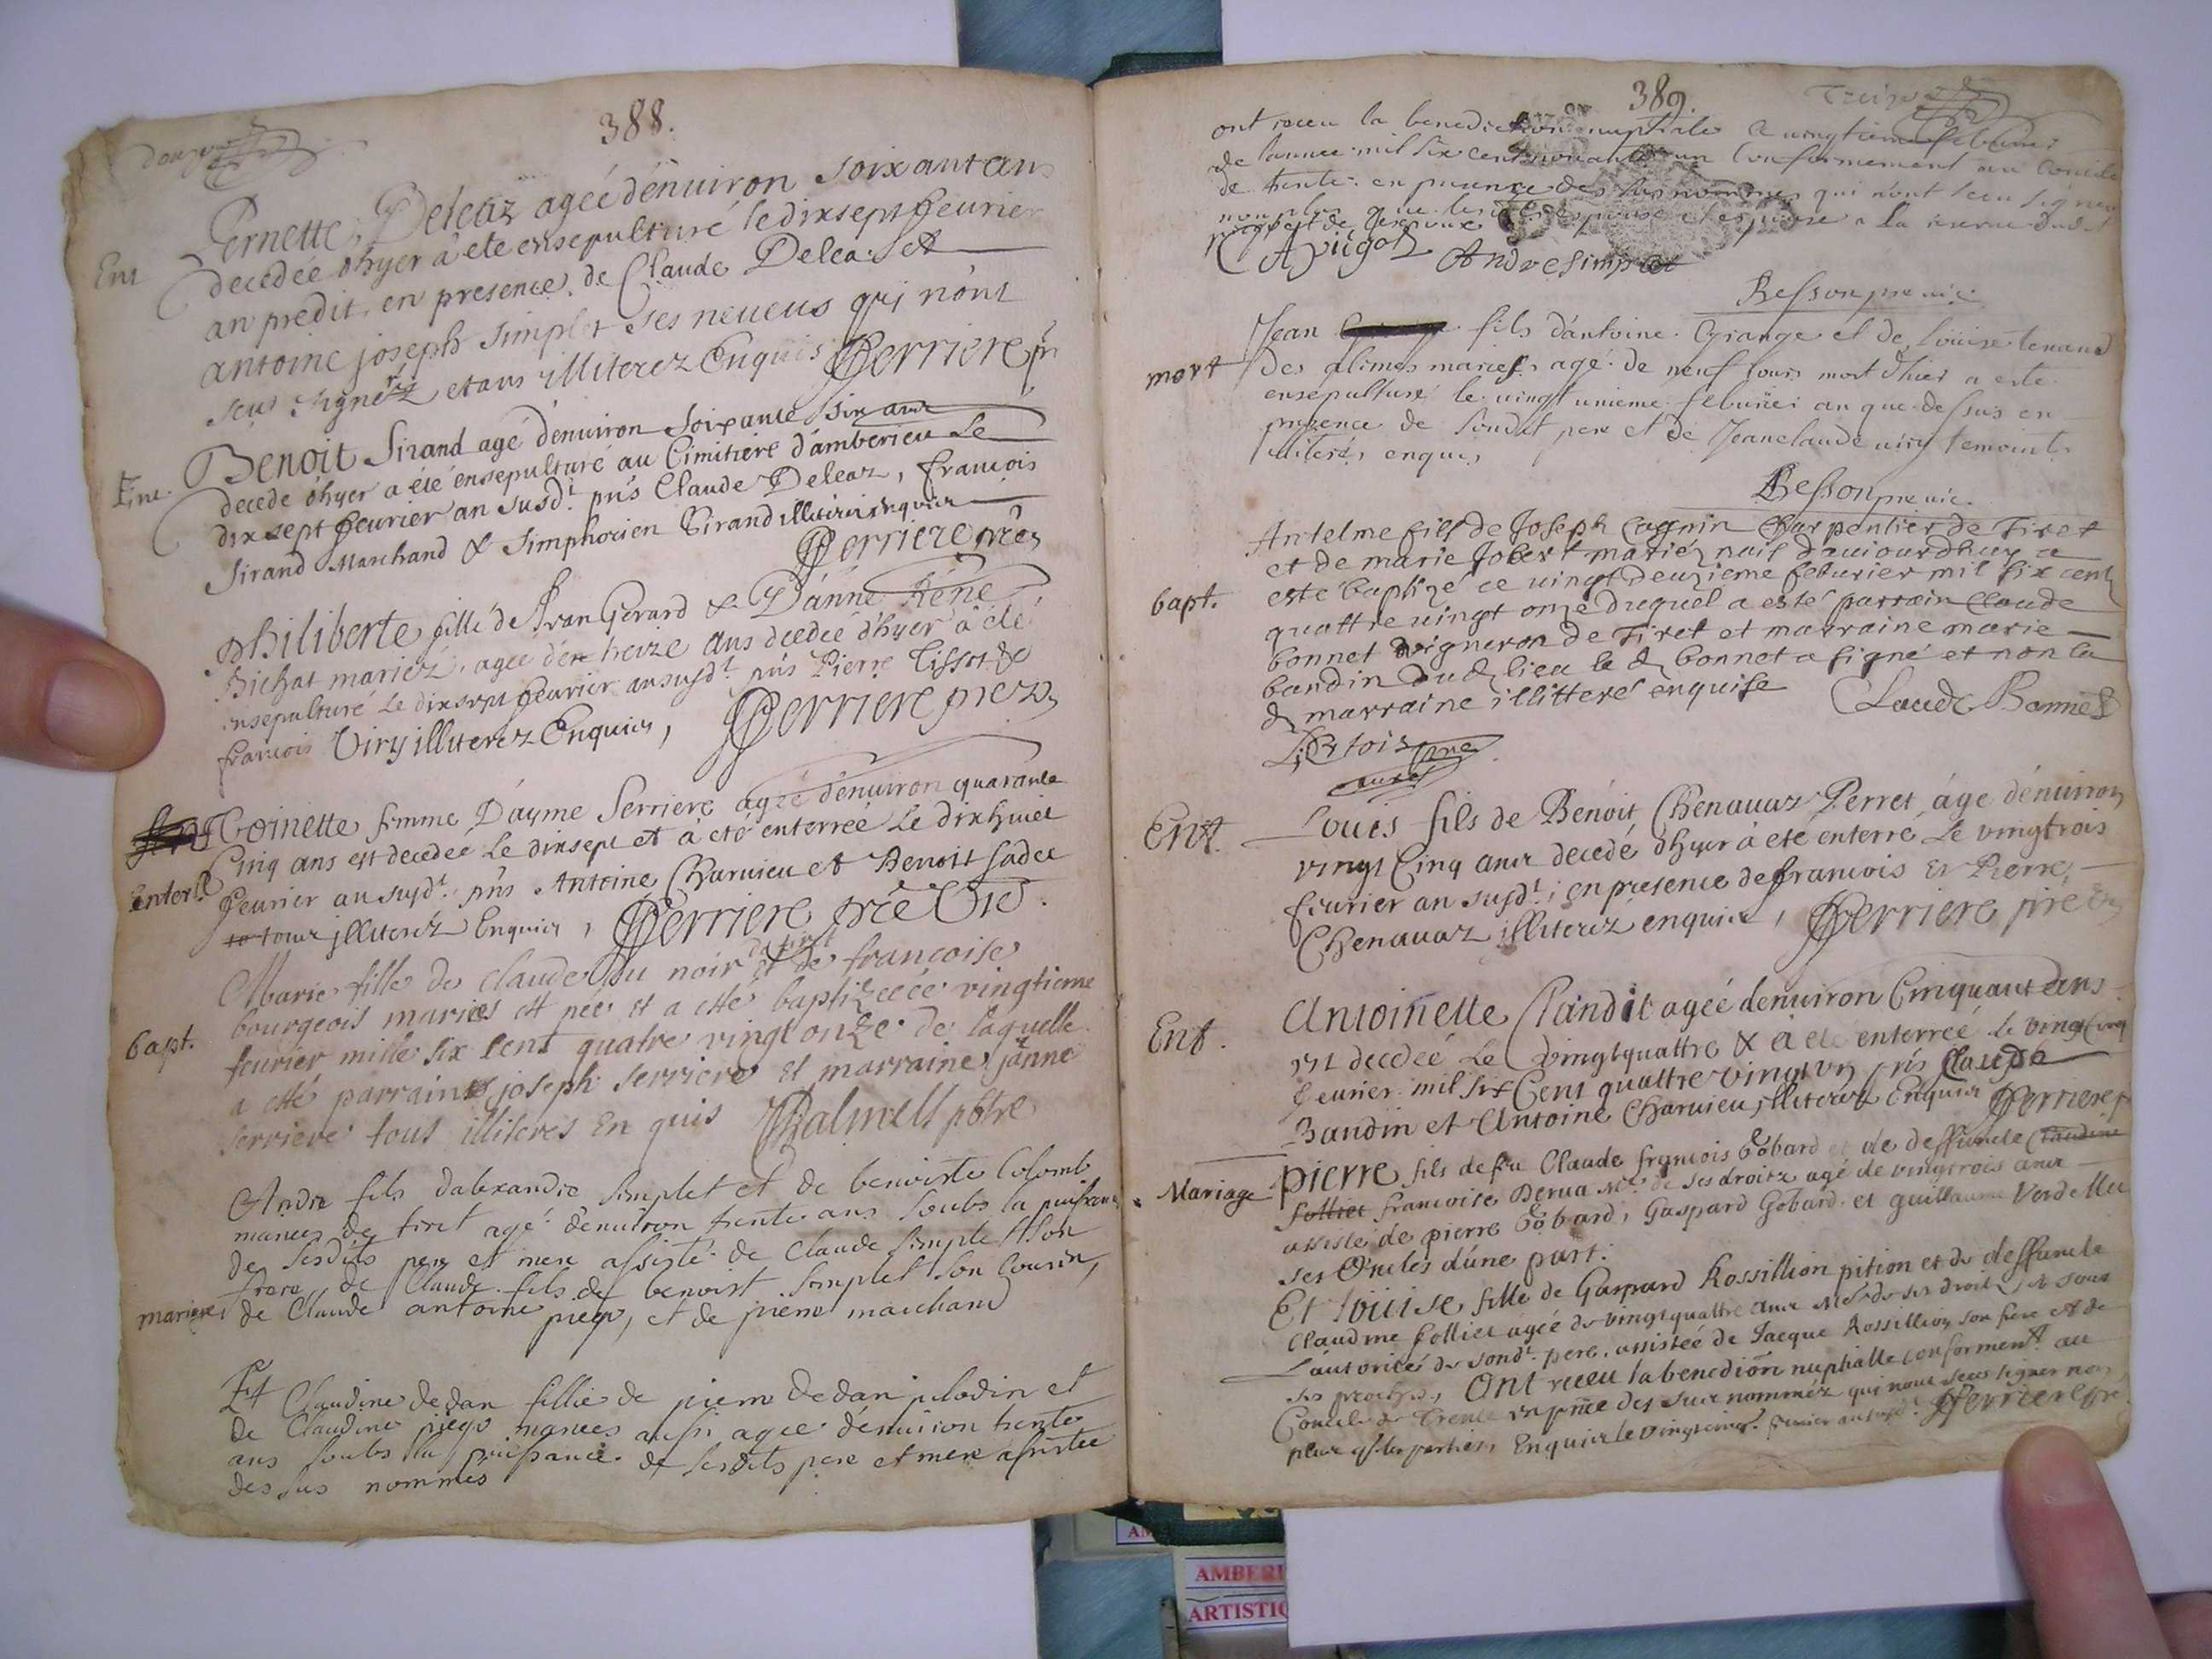 388.
Pernette Deleaz ageé dénuiron soixant ans
Ent
decedée d'hyer à ete ensepulturé le dixsept feurier
an predit, en presence de Claude Deleaz et
antoine joseph simplet ses neueus qui n'ont
sceu signer etans illiterez Enquis Perriere
Benoit Sirand agé dénuiron soixante six ans
Ent.
decede d'hyer a eté ensepulturé au Cimitiere d'amberieu le
dix sept feurier an susd.t pn̄s Claude Deleaz, francois
Sirand Marchand & Simphorien Sirand illiterez enquis
Perriere
philiberte fille de Gerard & D'anne
bichat mariez, agée de treize ans decedee d'hyer à eté
ensepulturé le dixsept feurier an susd.t pn̄s Pierre Tissot &
francois Viry illiterez Enquis, Perriere
Toinette femme D'ayme Serriere agée d'enuiron quarante
Cinq ans est decedee le dixsept et à eté enterreé Le dixhuict
Enter.
feurier an susd.t pn̄s Antoine Charuieu et Benoit
tour illiterez Enquis, Perriere
Marie fille de claude du noir et de francoise
bourgeois mariés est née et a esté baptizeé ce vingtieme
bapt.
feurier mille six cent quatre vingt onze de laquelle
a esté parrain joseph serriere et marraine janne
serriere tous illiteres en quis
Andre fils dalexandre simplet et de benoiste Colomb
maries de tiret agé d'enuiron trente ans soubs la puissance
de sesdits pere et mere assisté de Claude simplet son
frere, de Claude fils de benoist simplet son Cousin,
mariage
de Claude antoine, et de pierre marchand
Et Claudine dedan fillie de pierre dedan et
de Claudine maries aussi agee d'enuiron trente
ans soubs la puissance de sesdits pere et mere assistee
des sus nommés
389.
ont receu la benediction nuptiale ce vingtieme feburier
de lannee mil six cent nonante un Conformement au Concile
de trente en presence des susnommes qui n'ont sceu signer
non plus que lesdits espouse
André simplet
Besson
Jean fils d'antoine Grange et de Louise tenand
mort
des alimes maries, agé de neuf jours mort d'hier a esté
ensepulturé le vingt unieme feburier an que dessus en
presence de sondit pere et de Jeanclaude viry temoints
illiterés enquis
Besson
Antelme fils de Joseph Cognin Charpentier de Tiret
et de marie Jobert mariéz nais d'auiourdhuy a
bapt.
esté baptizé ce vingt deuzieme feburier mil six cent
quattre uingt onze duquel a esté parrain Claude
bonnet uigneron de Tiret et marraine marie
bandin dud lieu le d bonnet a signé et non la
d marraine illitteré enquise Claude Bonnet
Louis fils de Benoit Chenauaz Perret, áge dénuiron
Ent.
vingt Cinq ans decedé d'hyer à ete enterré Le vingtrois
feurier an susd.t, en presence de francois et Pierre
Chenauaz illiterez enquis, Perriere
Antoinette Plandit ageé denuiron Cinquant ans
Ent.
est decedeé Le vingtquattre & à ete enterreé le vingt cinq
feurier mil six Cent quattre vingt un pn̄s Claude
Baudin et Antoine Charuieu, illiterez Enquis Perriere
Mariage
Pierre fils de feu Claude francois Gobard et de deffuncte Claudine
folliet francoise Derua Me de ses droits agé de vingtrois ans
assisté de pierre Gobard, Gaspard Gobard et guillaume
ses Oncles d'une part.
Et Louise fille de Gaspard Rossillion pition et de deffuncte
Claudine folliet ageé de vingtquattre ans Me de ses droits et sous
L'autorité de sond.t pere, assisteé de Jacque Rossillion son frere et de
ses proches, Ont receu la benediōn nuptialle conformem.t au
Concile de Trente en pn̄ce des sus nomméz qui n'ont sceu signer non
plus q. les parties, Enquis le vingtcinq. feurier an susd.t Perriere
AMBERI
ARTISTIQ